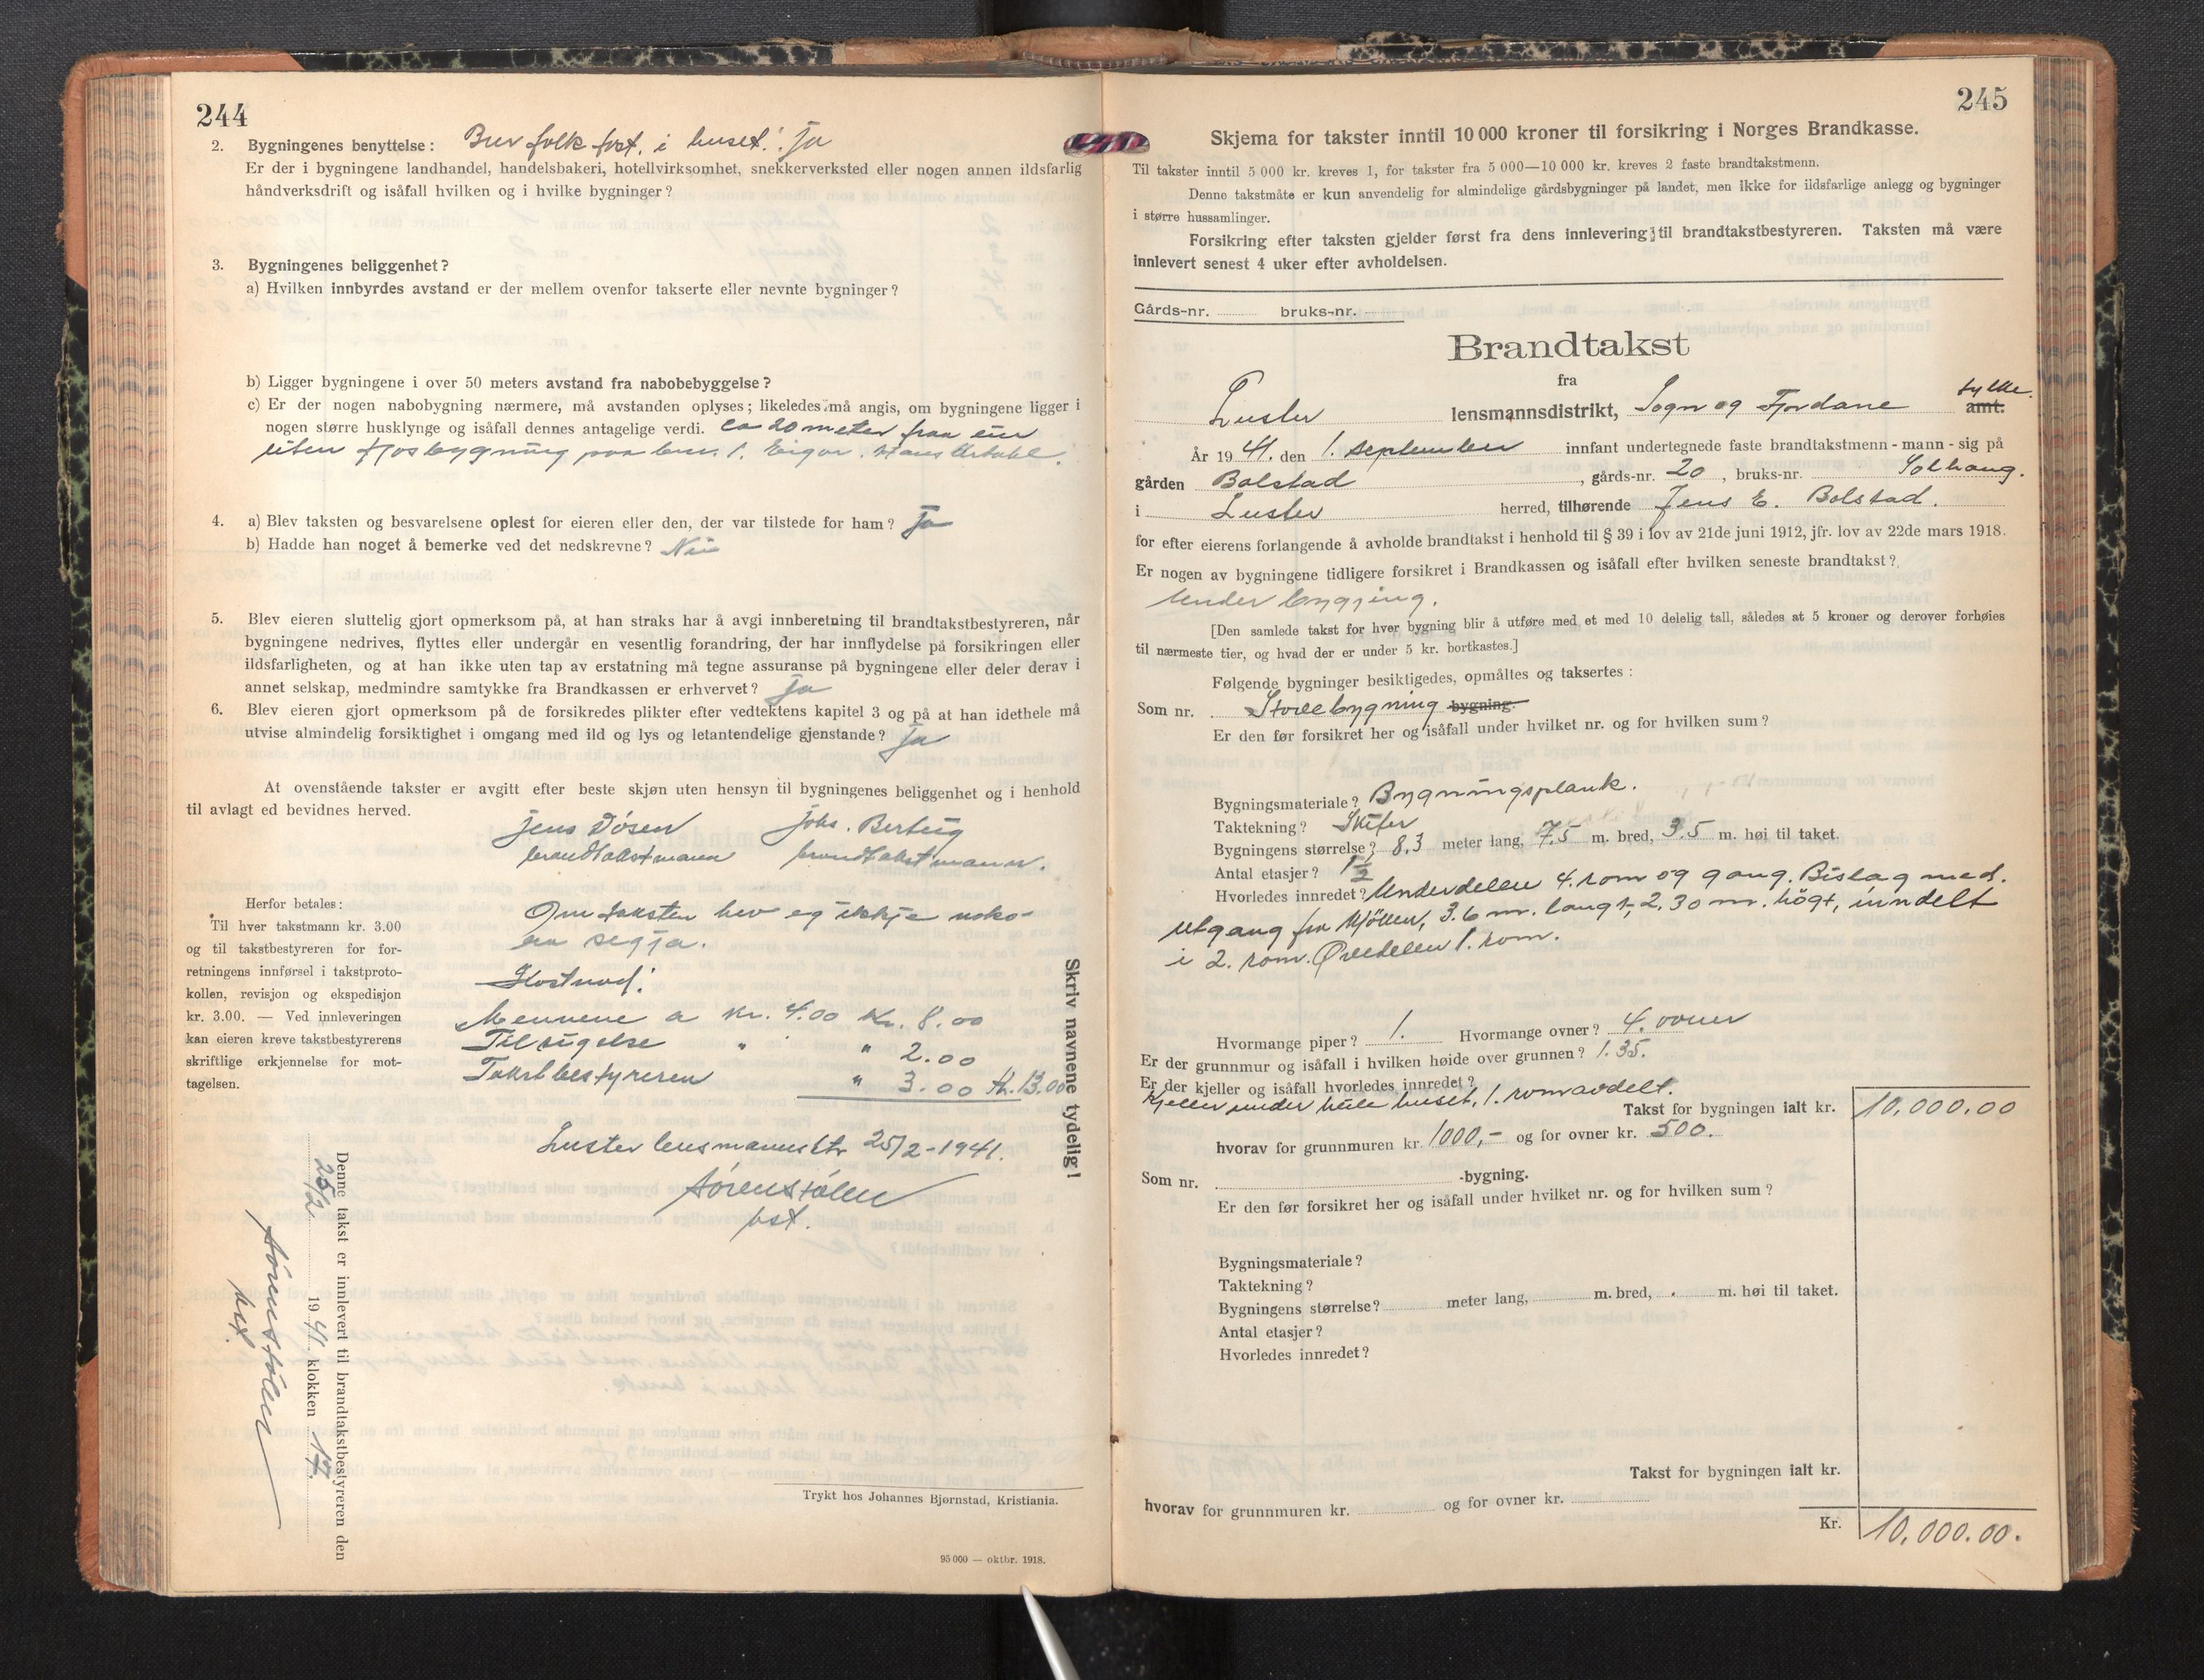 244
2. Bygningenes benyttelse: Bur folk fast i huset! Ja
Er der i bygningene landhandel, handelsbakeri, hotellvirksomhet, snekkerverksted eller nogen annen ildsfarlig
håndverksdrift og isåfall hvilken og i hvilke bygninger?
3. Bygningenes beliggenhet?
a) Hvilken innbyrdes avstand er der mellem ovenfor takserte eller nevnte bygninger?
b) Ligger bygningene i over 50 meters avstand fra nabobebyggelse?
c) Er der nogen nabobygning nærmere, må avstanden oplyses; likeledes må angis, om bygningene ligger i
nogen større husklynge og isåfall dennes antagelige verdi. Ca 20 meter fraa ein
liten fjosbygning paa bnr. 1. Eigar. Hans
4. a) Blev taksten og besvarelsene oplest for eieren eller den, der var tilstede for ham? Ja
b) Hadde han noget å bemerke ved det nedskrevne? Nei
5. Blev eieren sluttelig gjort opmerksom på, at han straks har å avgi innberetning til brandtakstbestyreren, når
bygningene nedrives, flyttes eller undergår en vesentlig forandring, der har innflydelse på forsikringen eller
ildsfarligheten, og at han ikke uten tap av erstatning må tegne assuranse på bygningene eller deler derav i
annet selskap, medmindre samtykke fra Brandkassen er erhvervet? Ja
6. Blev eieren gjort opmerksom på de forsikredes plikter efter vedtektens kapitel 3 og på at han idethele må
utvise almindelig forsiktighet i omgang med ild og lys og letantendelige gjenstande? Ja
At ovenstående takster er avgitt efter beste skjøn uten hensyn til bygningenes beliggenhet og i henhold
til avlagt ed bevidnes herved.
Jens Døsen Johs. Berteig
brandtakstmann brandtakstmann.
Herfor betales:
Til hver takstmann kr. 3.00
og til takstbestyreren for for-
retningens innførsel i takstproto-
kollen, revisjon og ekspedisjon
kr. 3.00. — Ved innleveringen
kan eieren kreve takstbestyrerens
skriftlige erkjennelse for mot-
tagelsen.
Om taksten hev eg ikkje noko-
aa segja.
Kostnad:
Mennene a kr. 4.00 Kr. 8.00
Tilsigelse " " 2.00
Takstbestyreren " 3.00 Kr. 13.00
Luster lensmannsktr 25/2-1941.
Sørensstølen
bst.
Skriv navnene tydelig!
Denne takst er innlevert til brandtakstbestyreren den
25/2 1941 klokken 17.
Sørensstølen
bst.
Trykt hos Johannes Bjørnstad, Kristiania.
95 000 — oktbr. 1918.
245
Skjema for takster inntil 10 000 kroner til forsikring i Norges Brandkasse.
Til takster inntil 5 000 kr. kreves 1, for takster fra 5 000—10 000 kr. kreves 2 faste brandtakstmenn.
Denne takstmåte er kun anvendelig for almindelige gårdsbygninger på landet, men ikke for ildsfarlige anlegg og bygninger
i større hussamlinger.
Forsikring efter taksten gjelder først fra dens innlevering til brandtakstbestyreren. Taksten må være
innlevert senest 4 uker efter avholdelsen.
Gårds-nr. bruks-nr.
Brandtakst
fra
Luster lensmannsdistrikt, Sogn og Fjordane fylke. amt.
År 1941. den 1. september innfant undertegnede faste brandtakstmenn - mann - sig på
gården Bolstad, gårds-nr. 20, bruks-nr. Solhaug.
i Luster herred, tilhørende Jens E. Bolstad.
for efter eierens forlangende å avholde brandtakst i henhold til § 39 i lov av 21de juni 1912, jfr. lov av 22de mars 1918.
Er nogen av bygningene tidligere forsikret i Brandkassen og isåfall efter hvilken seneste brandtakst?
Under bygging.
[Den samlede takst for hver bygning blir å utføre med et med 10 delelig tall, således at 5 kroner og derover forhøies
til nærmeste tier, og hvad der er under 5 kr. bortkastes.]
Følgende bygninger besiktigedes, opmåltes og taksertes:
Som nr. Stovebygning bygning.
Er den før forsikret her og isåfall under hvilket nr. og for hvilken sum?
Bygningsmateriale? Bygningsplank.
Taktekning? Skifer
Bygningens størrelse? 8.3 meter lang, 7.5 m. bred, 3.5 m. høi til taket.
Antal etasjer? 1 1/2
Hvorledes innredet? Underdelen 4. rom og gang. Bislag med.
utgang fra kjøken, 3.6 m. langt, 2.30 m. högt, inndelt
i 2. rom. Øvedelen 1. rom.
Hvormange piper? 1. Hvormange ovner? 4. ovner
Er der grunnmur og isåfall i hvilken høide over grunnen? 1.35.
Er der kjeller og isåfall hvorledes innredet?
Kjeller under heile huset, 1. rom avdelt.
Takst for bygningen ialt kr. 10,000.00
hvorav for grunnmuren kr. 1000,- og for ovner kr. 500.
Som nr. -bygning.
Er den før forsikret her og isåfall under hvilket nr. og for hvilken sum?
Bygningsmateriale?
Taktekning?
Bygningens størrelse? meter lang, m. bred, m. høi til taket.
Antal etasjer?
Hvorledes innredet?
Takst for bygningen ialt kr.
hvorav for grunnmuren kr. og for ovner kr.
Kr. 10,000.00.